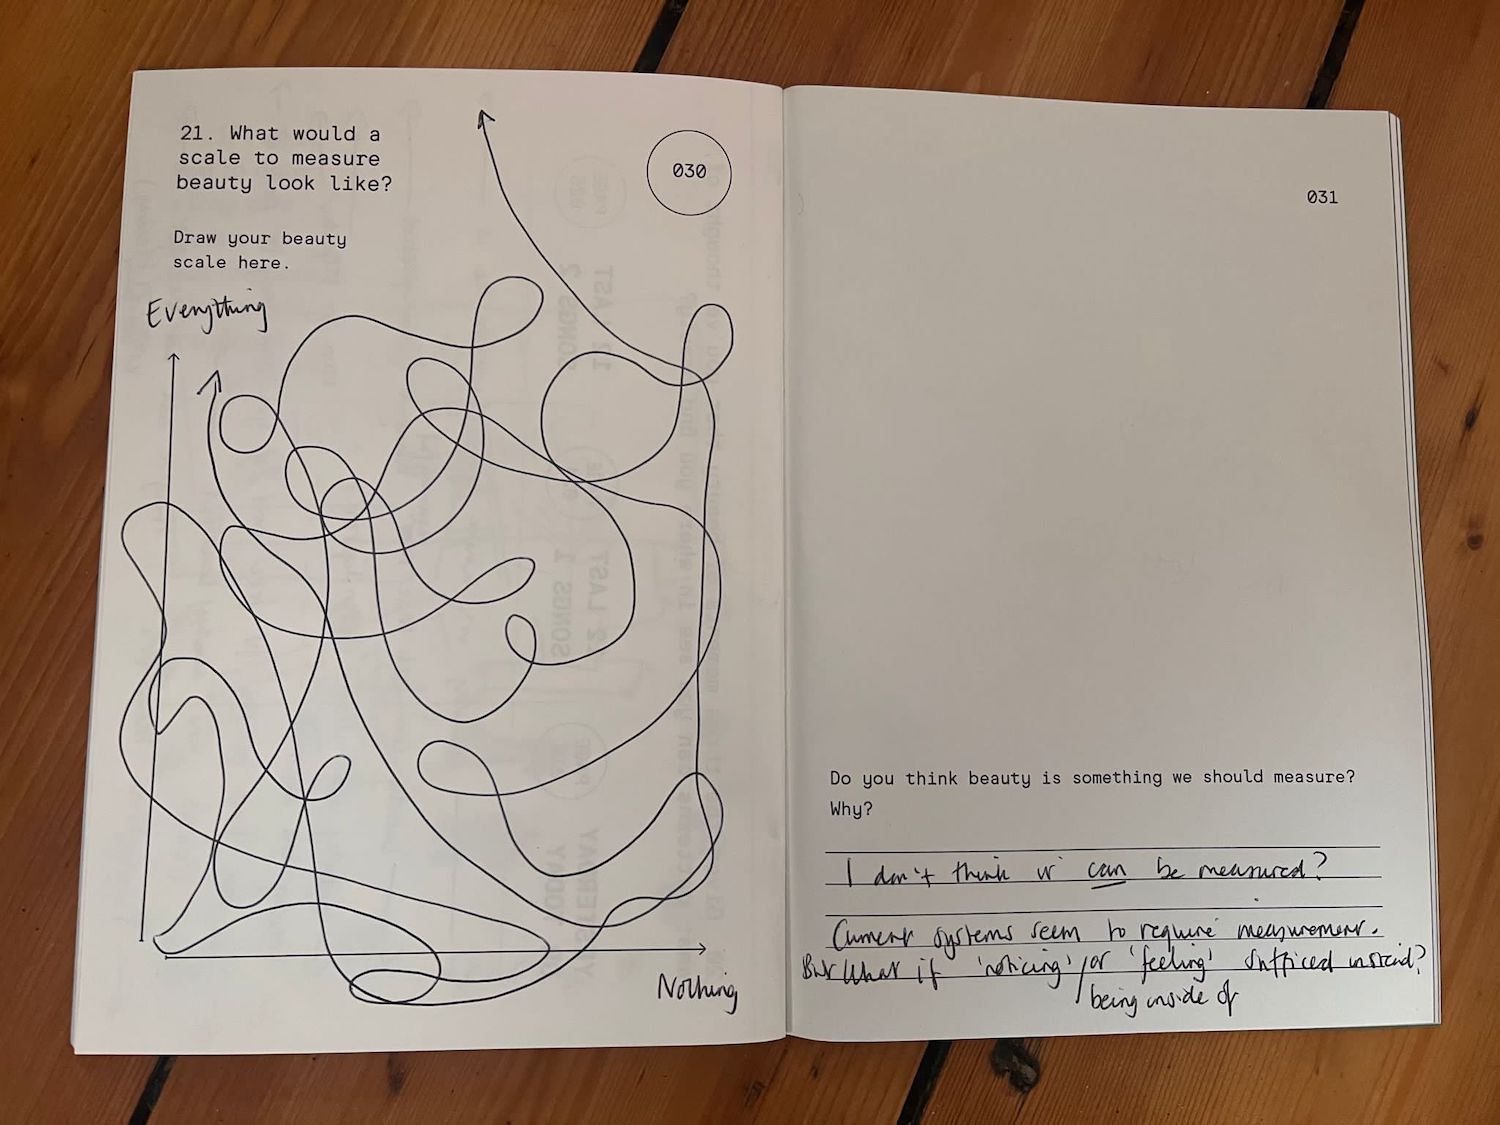 21. What would a
scale to measure
beauty look like?
030
Draw your beauty
scale here.
Everything
Nothing
031
Do you think beauty is something we should measure?
Why?
I don't think it can be measured?
Current systems seem to require measurement.
But what if 'noticing' / or 'feeling' sufficed instead?
being inside of